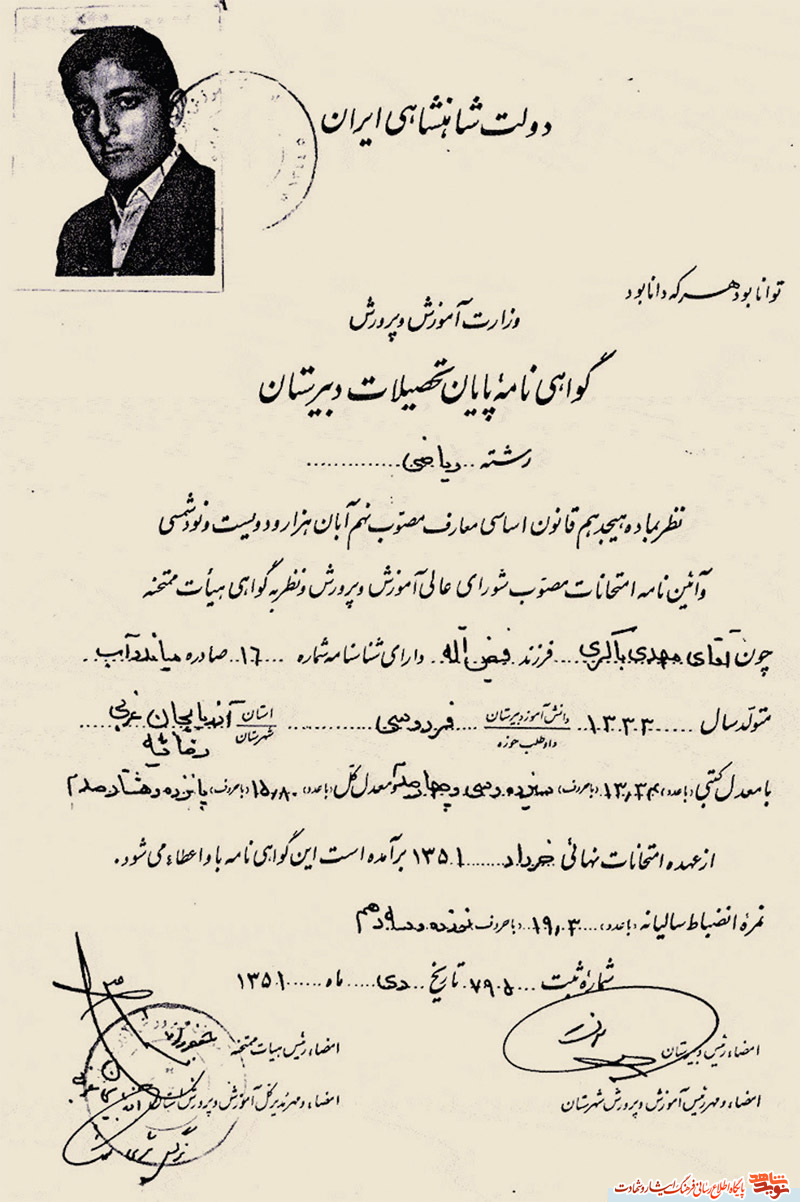 دولت شاهنشاهی ایران
توانا بود هر که دانا بود
وزارت آموزش و پرورش
گواهی نامهٔ پایان تحصیلات دبیرستان
رشته .. ریاضی ..............
نظر بماده هیجدهم قانون اساسی معارف مصوّب نهم آبان هزار و دویست و نود شمسی
و آئین نامه امتحانات مصوّب شورای عالی آموزش و پرورش و نظر به گواهی هیأت ممتحنه
چون آقای مهدی باکری .... فرزند فیض اله .. دارای شناسنامه شماره ... ۱۶ .. صادره میاندوآب ..
متولد سال ...... ۱۳۳۳ .. دانش آموز دبیرستان داوطلب حوزه .... فردوسی .............. استان شهرستان آذربایجان غربی رضائیه ......
با معدل کتبی (با عدد) ۱۳٫۳۴ (با حروف) سیزده و سی و چهار صدم معدل کل (با عدد) ۱۵٫۸۰ (با حروف) پانزده و هشتاد صدم
از عهده امتحانات نهائی خرداد ...... ۱۳۵۱ برآمده است این گواهی نامه با و اعطاء می شود .
نمرهٔ انضباط سالیانه (با عدد) .... ۱۹٫۳ ... (با حروف) نوزده و سه دهم
شمارهٔ ثبت ... ۷۹۰۵ تاریخ .. دی ..... ماه ...... ۱۳۵۱
امضاء رئیس دبیرستان
امضاء رئیس هیات ممتحنه
امضاء و مهر رئیس آموزش و پرورش شهرستان
امضاء و مهر مدیر کل آموزش و پرورش استان
نوید شاهد
پایگاه اطلاع رسانی فرهنگ ایثار و شهادت